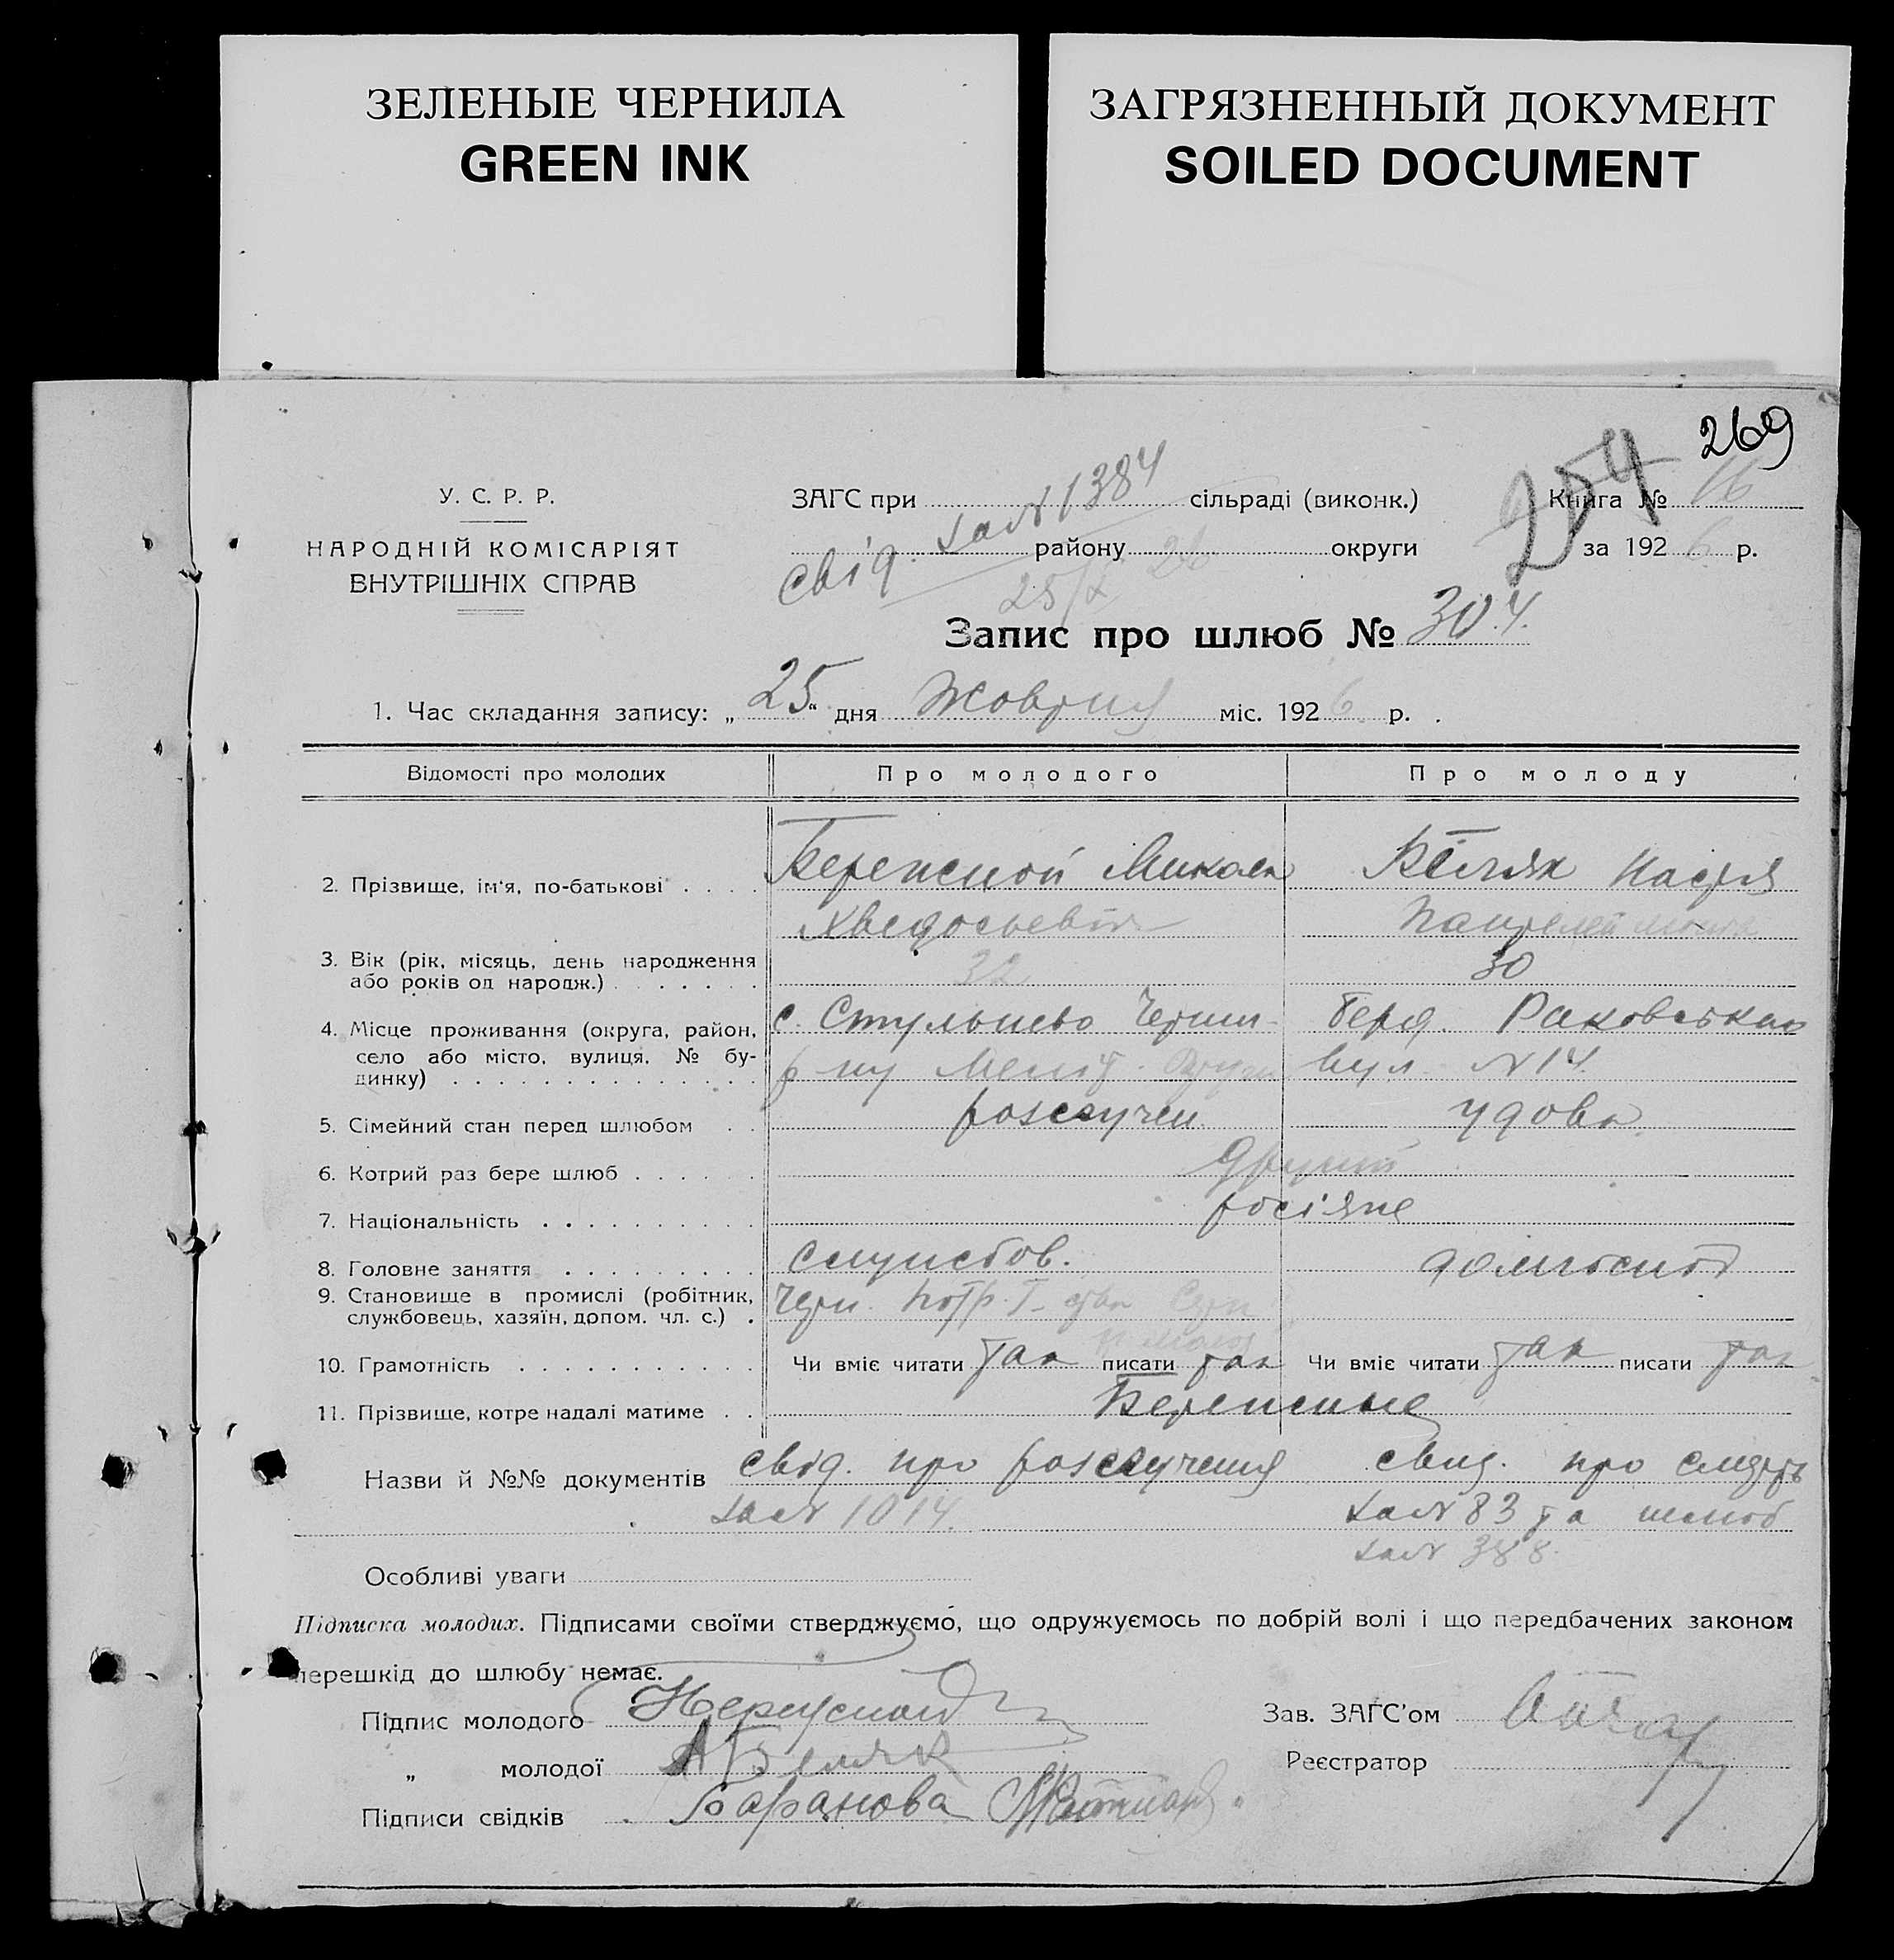 ЗЕЛЕНЫЕ ЧЕРНИЛА
GREEN INK
ЗАГРЯЗНЕННЫЙ ДОКУМЕНТ
SOILED DOCUMENT
269
254
У. С. Р. Р.
НАРОДНІЙ КОМІСАРІЯТ
ВНУТРІШНІХ СПРАВ
ЗАГС при сільраді (виконк.)
району округи
свід. за № 1384
25/X 26
Книга № 16
за 1926 р.
Запис про шлюб № 304.
1. Час складання запису: „25“ дня Жовтня міс. 1926 р.
Відомості про молодих Про молодого Про молоду
2. Прізвище, ім'я, по-батькові Бережной Микола Беляк Настя
3. Вік (рік, місяць, день народження або років од народж.) 32 30
4. Місце проживання (округа, район, село або місто, вулиця, № будинку) с. Стульнево Черни- Берд. Раковська
р-ну Меліт. вул. № 14
5. Сімейний стан перед шлюбом розлучен. удова
6. Котрий раз бере шлюб другий
7. Національність росіяне
8. Головне заняття службов. домгоспод
9. Становище в промислі (робітник, службовець, хазяїн, допом. чл. с.)
10. Грамотність Чи вміє читати так писати так Чи вміє читати так писати так
11. Прізвище, котре надалі матиме Бережные
Назви й №№ документів свід. про розлучения свид. про смерть
за № 1014. за № 83 та шлюб
за № 388.
Особливі уваги
Підписка молодих. Підписами своїми стверджуємо, що одружуємось по добрій волі і що передбачених законом
перешкід до шлюбу немає.
Підпис молодого
„ молодої А Беляк
Підписи свідків Баранова
Зав. ЗАГС'ом
Реєстратор